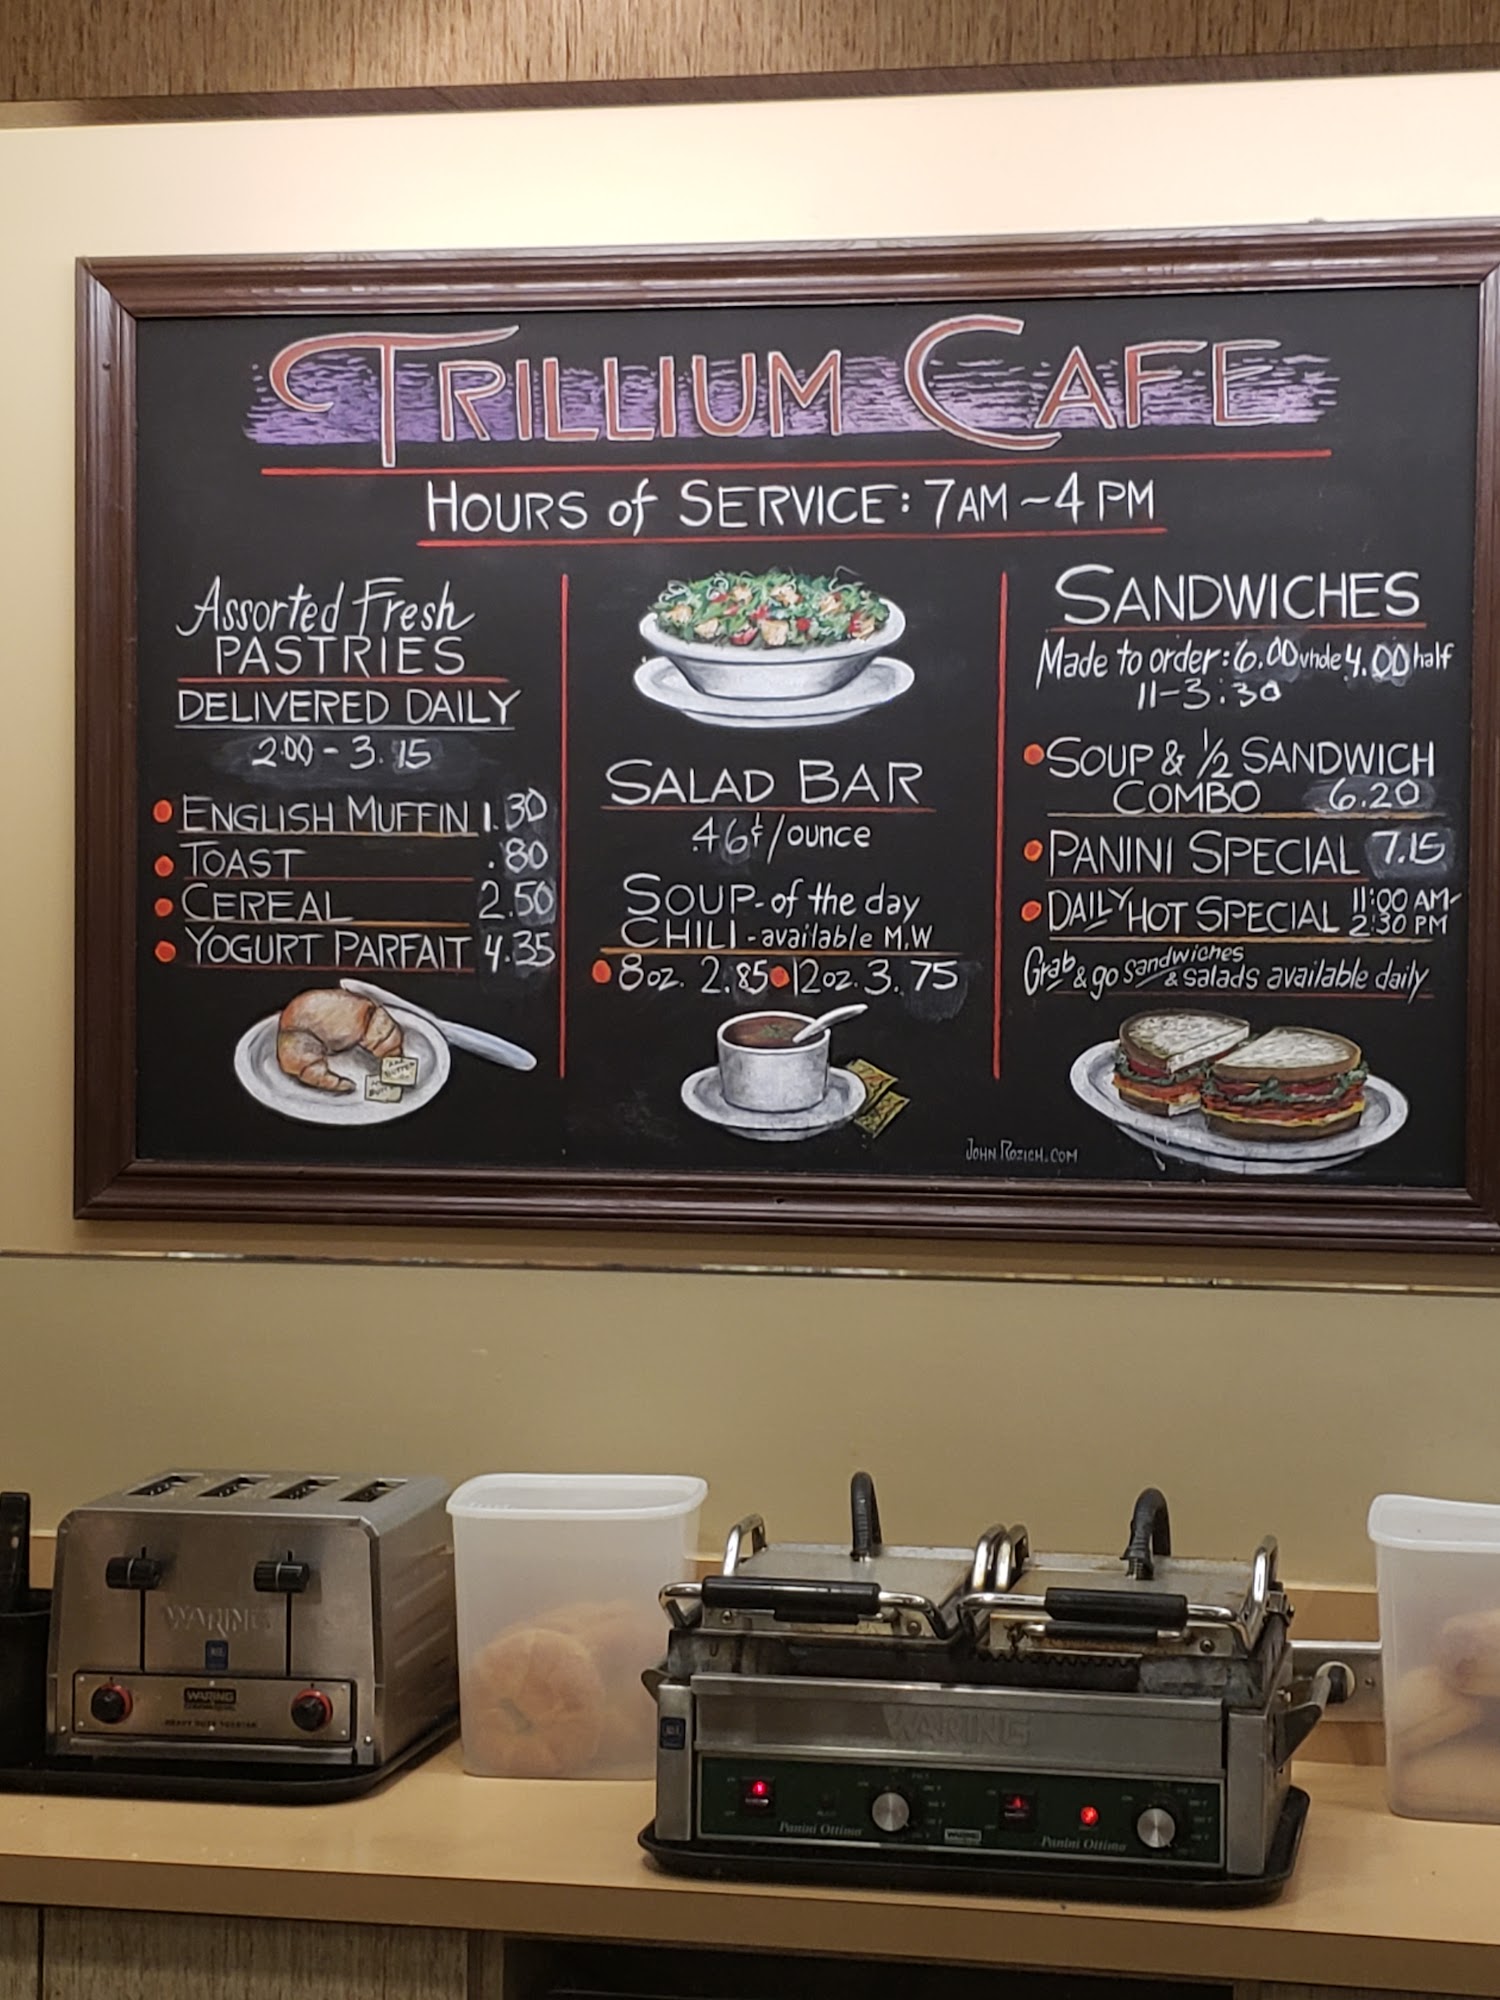 TRILLIUM CAFE
HOURS of SERVICE: 7AM~4PM
Assorted Fresh
PASTRIES
DELIVERED DAILY
2.00 - 3.15
ENGLISH MUFFIN 1.30
TOAST .80
CEREAL 2.50
YOGURT PARFAIT 4.35
SALAD BAR
.46¢/ounce
SOUP-of the day
CHILI-available M,W
8oz. 2.85 12oz. 3.75
SANDWICHES
Made to order: 6.00 whole 4.00 half
11-3:30
SOUP & 1/2 SANDWICH
COMBO 6.20
PANINI SPECIAL 7.15
DAILY HOT SPECIAL 11:00 AM-
2:30 PM
Grab & go sandwiches
& salads available daily
JOHN ROZICH.COM
WARING
WARING
HEAVY DUTY TOASTER
WARING
Panini Ottimo
WARING
Panini Ottimo